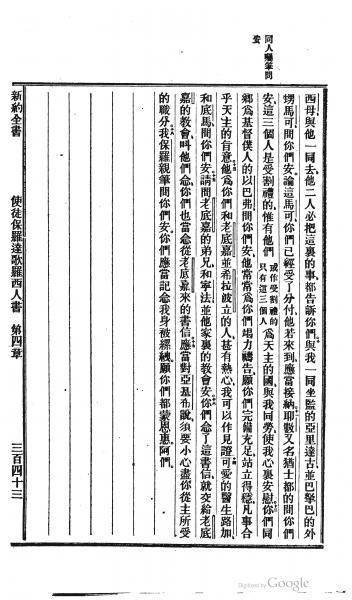 同人囑筆問安
西母與他一同去他二人必把這裏的事都告訴你們與我一同坐監的亞里達古並巴拏巴的外
甥馬可問你們安論這馬可你們已經受了分付他若來到應當接納耶數又名猶士都的問你們
安這三個人是受割禮的惟有他們 或作受割禮的只有這三個人 為天主的國與我同勞使我心裏安慰你們同
鄉為基督僕人的以巴弗問你們安他常常為你們竭力禱告願你們完備充足站立得穩凡事合
乎天主的旨意他為你們和老底嘉並希拉波立的人甚有熱心我可以作見證可愛的醫生路加
和底馬問你們安請問老底嘉的弟兄和寧法並他家裏的教會安你們念了這書信就交給老底
嘉的教會叫他們念你們也當念從老底嘉來的書信應當對亞基布說須要小心盡你從主所受
的職分我保羅親筆問你們安你們應當記念我身被縲絏願你們都蒙恩惠阿們
新約全書 使徒保羅達歌羅西人書 第四章 三百四十三
Digitized by Google